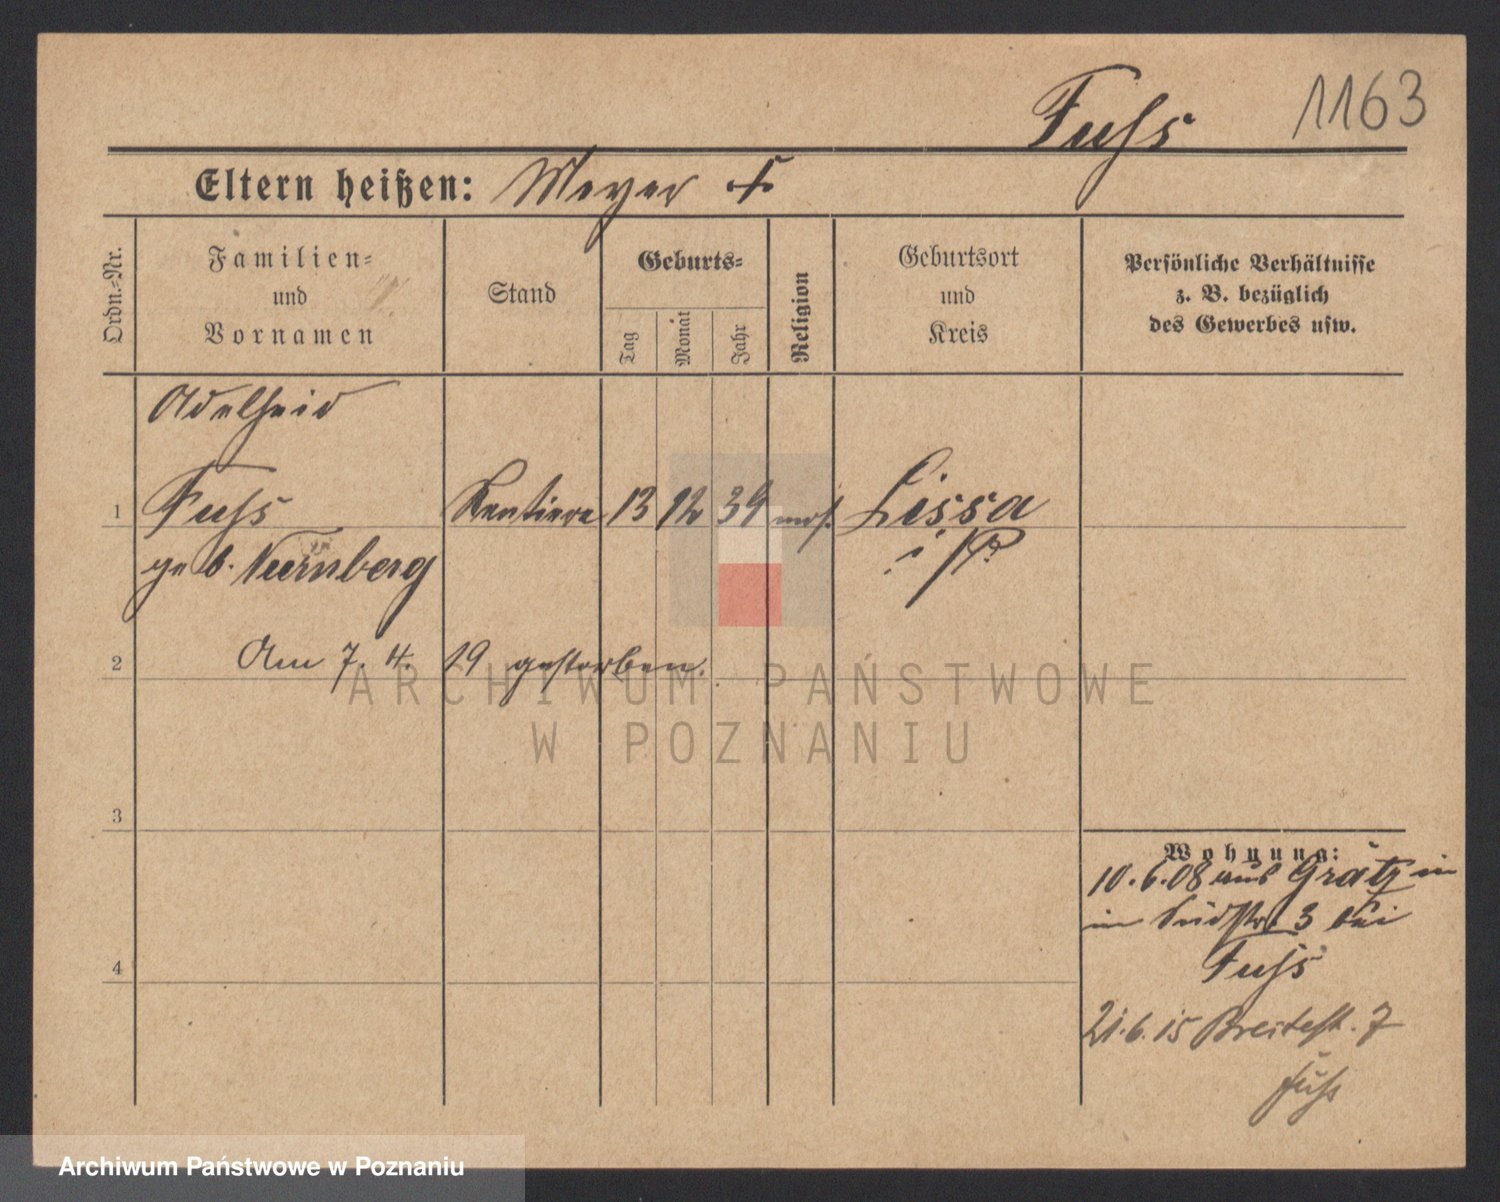 Fuß
1163
Eltern heißen: Meyer †
Ordn.-Nr.
Familien-
und
Vornamen
Stand
Geburts-
Tag
Monat
Jahr
Religion
Geburtsort
und
Kreis
Persönliche Verhältnisse
z. B. bezüglich
des Gewerbes usw.
Adelheid
1 Fuß Rentiere 13 12 39 mos. Lissa
geb. Nürnberg i/P.
2 Am 7. 4. 19 gestorben.
3
4
Wohnung:
10.6.08 aus Grätz in
in Südstr. 3 bei
Fuß
21.6.15 Breitestr. 7
Fuß
ARCHIWUM PAŃSTWOWE
W POZNANIU
Archiwum Państwowe w Poznaniu